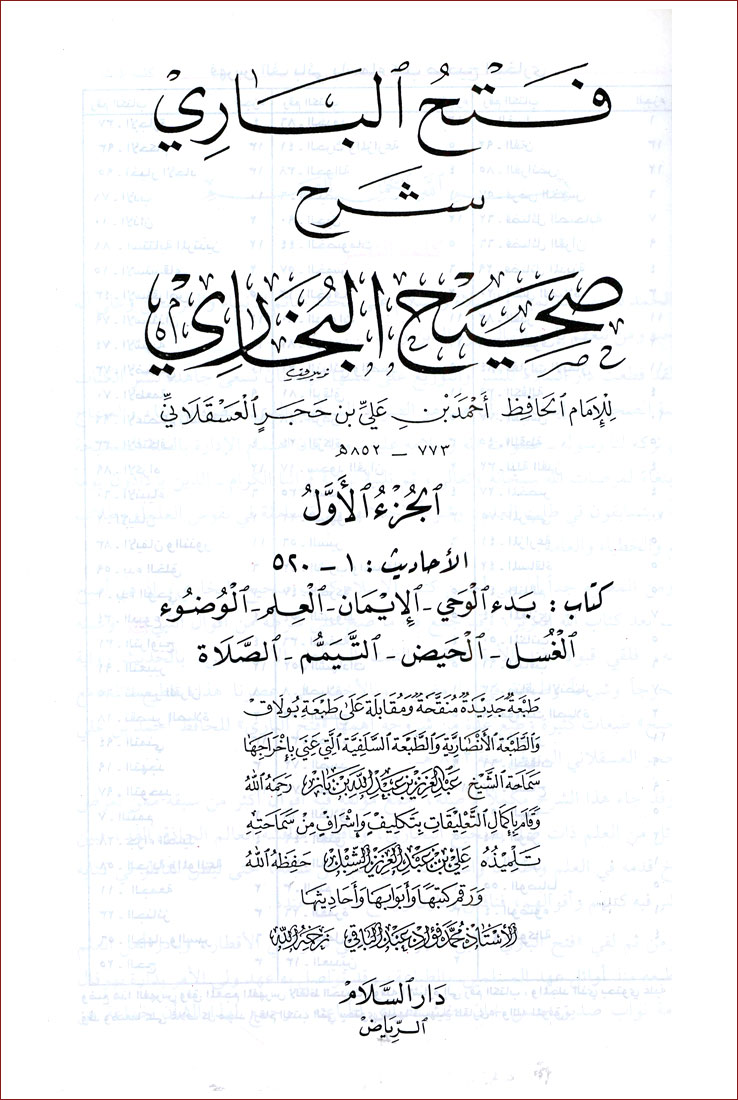 فَتْحُ ٱلبَارِيْ
شَرْح
صَحِيْح ٱلبُخَارِيْ
لِلإِمَامِ ٱلحَافِظِ أَحْمَدَ بْنِ عَلِيِّ بْنِ حَجَرٍ ٱلعَسْقَلَانِيّ
٧٧٣ – ٨٥٢هـ
ٱلجُزْءُ ٱلأَوَّلُ
الأحاديث: ١ – ٥٢٠
كتاب: بَدء ٱلوَحي - ٱلإِيْمَان - ٱلعِلم - ٱلوُضُوء
ٱلغُسل - ٱلحَيض - ٱلتَّيَمُّم - ٱلصَّلَاة
طَبْعَةٌ جَدِيْدَةٌ مُنَقَّحَةٌ وَمُقَابَلَةٌ عَلَى طَبْعَةِ بُولَاق
وَالطَّبْعَةِ الأَنْصَارِيَّةِ وَالطَّبْعَةِ السَّلَفِيَّةِ الَّتِي عُنِيَ بِإِخْرَاجِهَا
سَمَاحَةُ الشَّيْخِ عَبْدُ الْعَزِيزِ بْنُ عَبْدِ اللهِ بْنِ بَازٍ رَحِمَهُ اللهُ
وَقَامَ بِإِكْمَالِ التَّعْلِيْقَاتِ بِتَكْلِيْفٍ وَإِشْرَافٍ مِنْ سَمَاحَتِهِ
تِلْمِيْذُهُ عَلِيُّ بْنُ عَبْدِ الْعَزِيزِ الشِّبْلُ حَفِظَهُ اللهُ
وَرَقَّمَ كُتُبَهَا وَأَبْوَابَهَا وَأَحَادِيْثَهَا
الأُسْتَاذُ مُحَمَّد فُؤَاد عَبْدُ الْبَاقِي رَحِمَهُ اللهُ
دَارُ ٱلسَّلَام
ٱلرِّيَاضُ